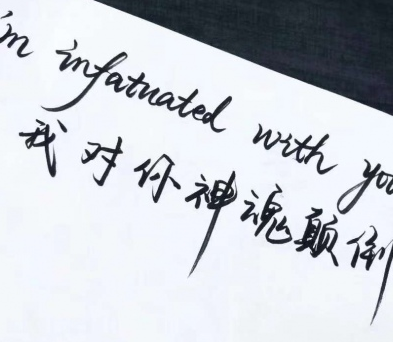 i'm infatuated with you
我对你神魂颠倒